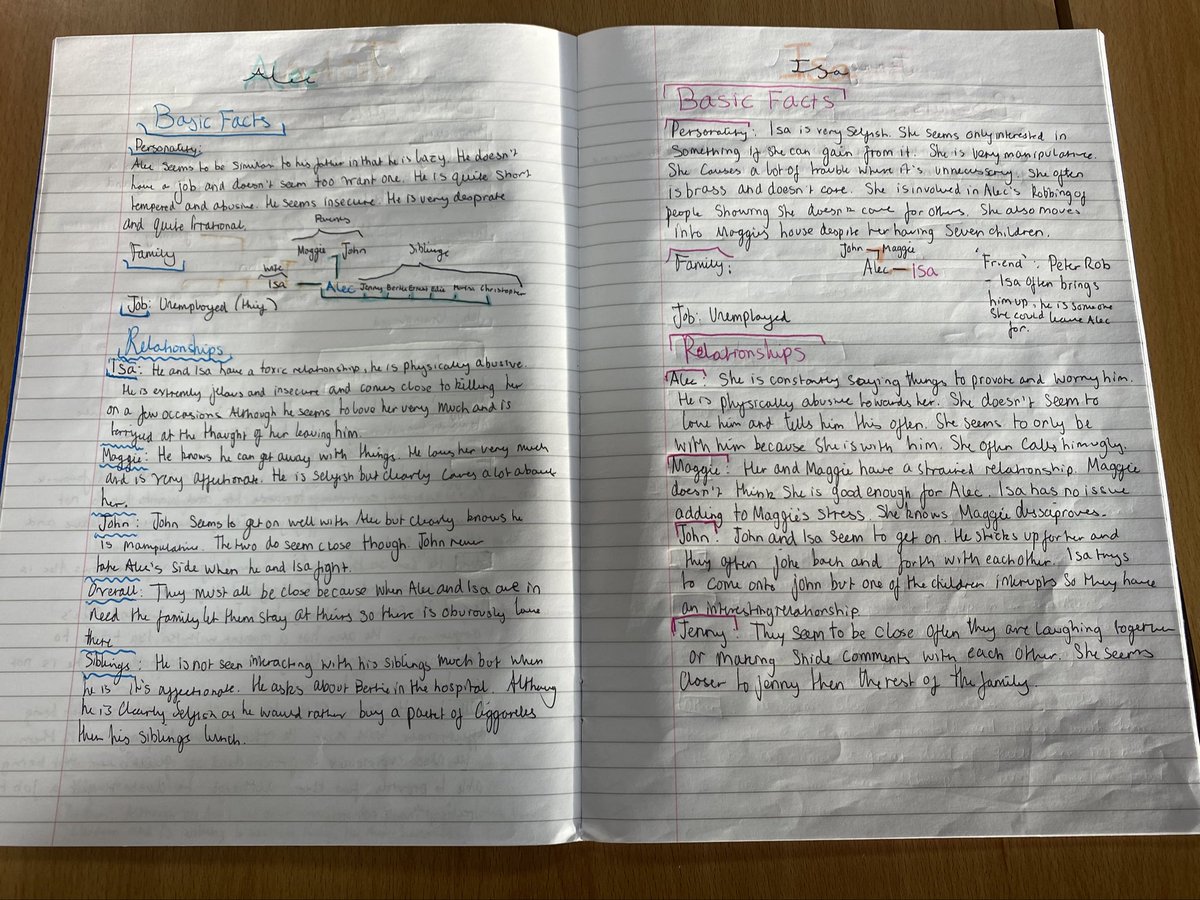 Alec
Basic Facts
Personality:
Alec seems to be similar to his father in that he is lazy. He doesn't
have a job and doesn't seem too want one. He is quite short
tempered and abusive. He seems insecure. He is very desprate
and quite Irrational.
Parents
Family
Maggie John Siblings
wife
Isa Alec Jenny Bertie Ernest Edie Marina Christopher
Job: Unemployed (thug)
Relationships
Isa: He and Isa have a toxic relationship, he is physically abusive.
He is extremly jelous and insecure and comes close to killing her
on a few occasions. Although he seems to love her very much and is
terryfied at the thought of her leaving him.
Maggie: He knows he can get away with things. He loves her very much
and is very affectionate. He is selfish but clearly cares a lot about
her.
John: John seems to get on well with Alec but clearly knows he
is manipulative. The two do seem close though. John never
take Alec's side when he and Isa fight.
Overall: They must all be close because when Alec and Isa are in
need the family let them stay at theirs so there is obviously love
there
Siblings: He is not seen interacting with his siblings much but when
he is it's affectionate. He asks about Bertie in the hospital. Although
he is clearly selfish as he would rather buy a packet of Ciggaretes
then his siblings lunch.
Isa
Basic Facts
Personality: Isa is very Selfish. She seems only interested in
something if she can gain from it. She is very manipulative.
She causes a lot of trouble where it's unnecessery. She often
is brass and doesn't care. She is involved in Alec's Robbing of
people showing she doesn't care for others. She also moves
into Maggies house despite her having Seven children.
John Maggie
Family: Alec Isa
'Friend': Peter Rob
- Isa often brings
him up, he is someone
she could leave Alec
for.
Job: Unemployed
Relationships
Alec: She is constantly saying things to provoke and worry him.
He is physically abusive towards her. She doesn't seem to
love him and tells him this often. She seems to only be
with him because she is with him. She often calls him ugly.
Maggie: Her and Maggie have a strained relationship. Maggie
doesn't think she is good enough for Alec. Isa has no issue
adding to Maggie's stress. She knows Maggie dissaproves.
John: John and Isa seem to get on. He sticks up for her and
they often joke back and forth with eachother. Isa trys
to come onto john but one of the children interupts so they have
an interesting relationship
Jenny: They seem to be close often they are laughing together
or making snide comments with each other. She seems
closer to jenny then the rest of the family.